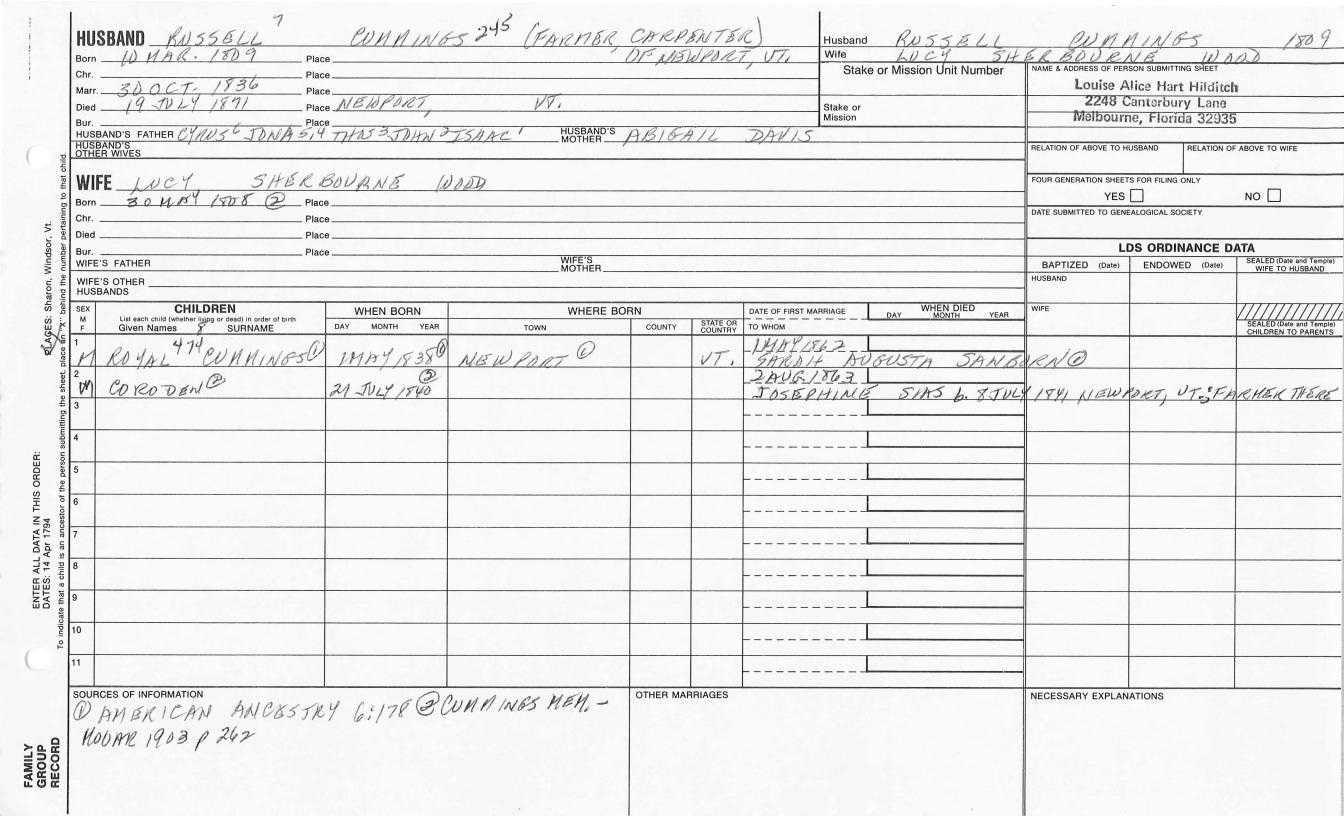 7
HUSBAND RUSSELL CUMMINGS 245 (FARMER, CARPENTER)
Born 10 MAR. 1809 Place OF NEWPORT, VT.
Chr. Place
Marr. 30 OCT. 1836 Place
Died 19 JULY 1871 Place NEWPORT, VT.
Bur. Place
HUSBAND'S FATHER CYRUS 6 JONA 5,4 THOS 3 JOHN 2 ISAAC 1 HUSBAND'S MOTHER ABIGAIL DAVIS
HUSBAND'S OTHER WIVES
WIFE LUCY SHERBOURNE WOOD
Born 30 MAY 1808 ② Place
Chr. Place
Died Place
Bur. Place
WIFE'S FATHER WIFE'S MOTHER
WIFE'S OTHER HUSBANDS
Husband RUSSELL CUMMINGS 1809
Wife LUCY SHERBOURNE WOOD
Stake or Mission Unit Number
Stake or Mission
NAME & ADDRESS OF PERSON SUBMITTING SHEET
Louise Alice Hart Hilditch
2248 Canterbury Lane
Melbourne, Florida 32935
RELATION OF ABOVE TO HUSBAND RELATION OF ABOVE TO WIFE
FOUR GENERATION SHEETS FOR FILING ONLY
YES NO
DATE SUBMITTED TO GENEALOGICAL SOCIETY
LDS ORDINANCE DATA
BAPTIZED (Date) ENDOWED (Date) SEALED (Date and Temple) WIFE TO HUSBAND
HUSBAND
WIFE
SEALED (Date and Temple) CHILDREN TO PARENTS
SEX M F
CHILDREN
List each child (whether living or dead) in order of birth
Given Names 8 SURNAME
WHEN BORN
DAY MONTH YEAR
WHERE BORN
TOWN COUNTY STATE OR COUNTRY
DATE OF FIRST MARRIAGE
TO WHOM
WHEN DIED
DAY MONTH YEAR
1 1 MAY 1862
M ROYAL 474 CUMMINGS ① 1 MAY 1838 ① NEWPORT ① VT. SARAH AUGUSTA SANBORN ①
2 2 AUG 1863
M CORODEN ② 29 JULY 1840 ② JOSEPHINE SIAS b. 8 JULY 1841 NEWPORT, VT; FARMER THERE
3
4
5
6
7
8
9
10
11
SOURCES OF INFORMATION
① AMERICAN ANCESTRY 6:178 ② CUMMINGS MEM. -
MOOAR 1903 p 262
OTHER MARRIAGES
NECESSARY EXPLANATIONS
ENTER ALL DATA IN THIS ORDER:
DATES: 14 Apr 1794
PLACES: Sharon, Windsor, Vt.
To indicate that a child is an ancestor of the person submitting the sheet, place an "X" behind the number pertaining to that child.
FAMILY GROUP RECORD